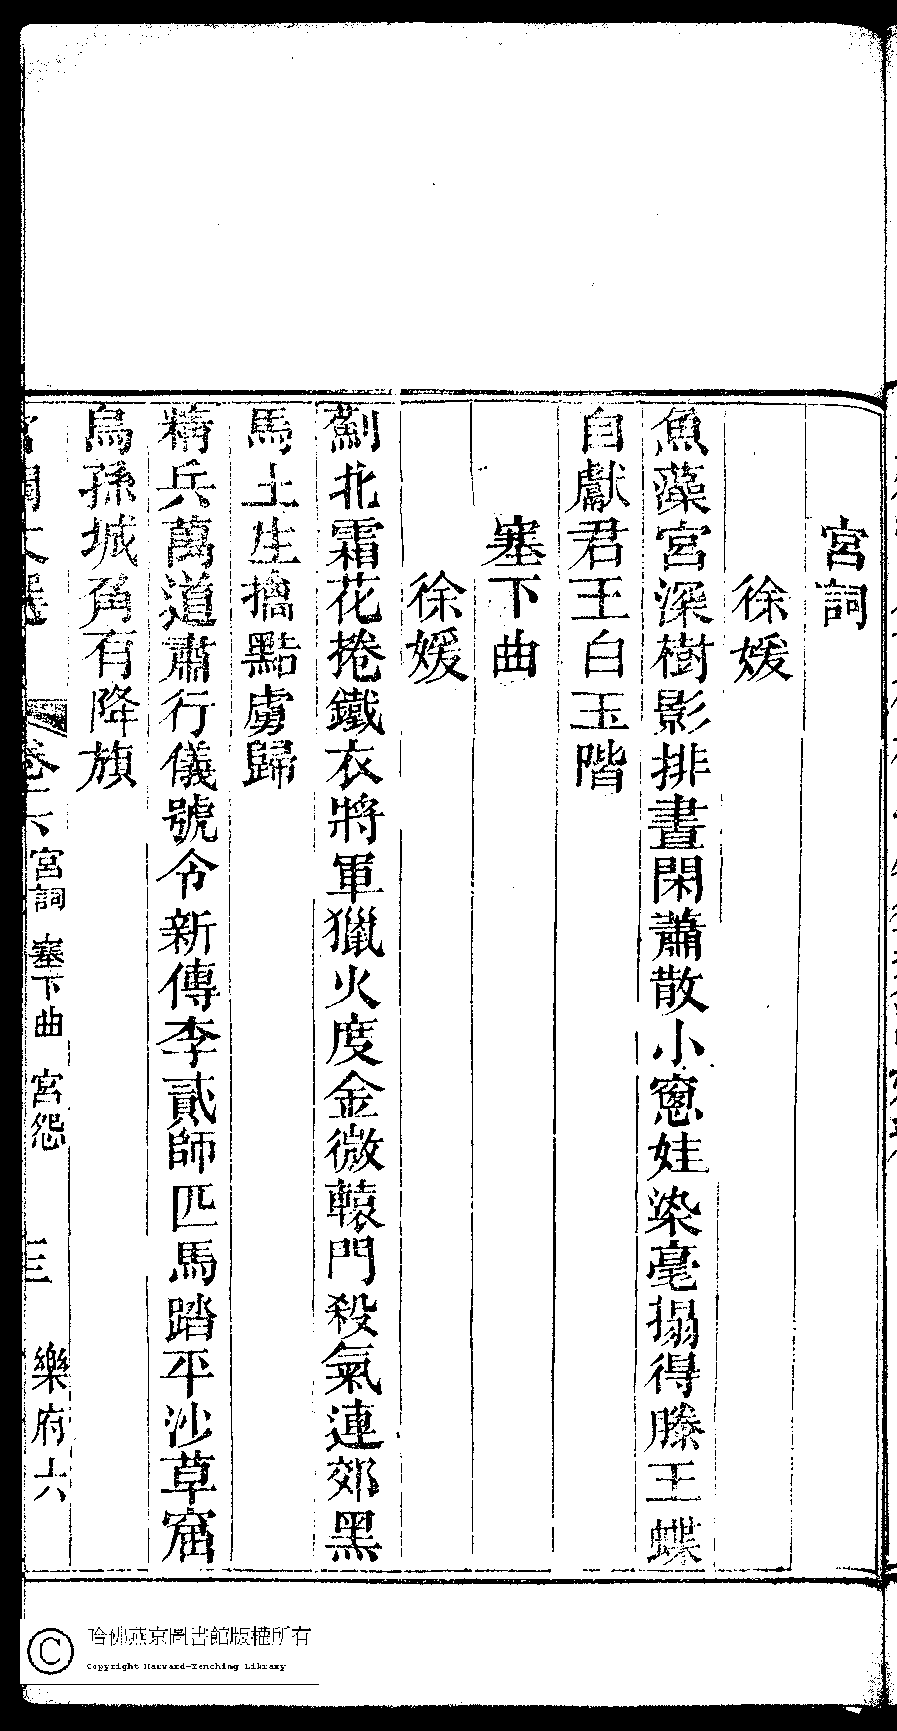 宮詞
徐媛
魚藻宮深樹影排晝閑蕭散小窻娃染毫搨得滕王蝶
自獻君王白玉階
塞下曲
徐媛
薊北霜花捲鐵衣將軍獵火度金微轅門殺氣連郊黑
馬上生擒黠虜歸
精兵萬道肅行儀號令新傳李貳師匹馬踏平沙草窟
烏孫城角有降旗
卷六 宮詞 塞下曲 宮怨 三 樂府六
哈佛燕京圖書館版權所有
Copyright Harvard-Yenching Library